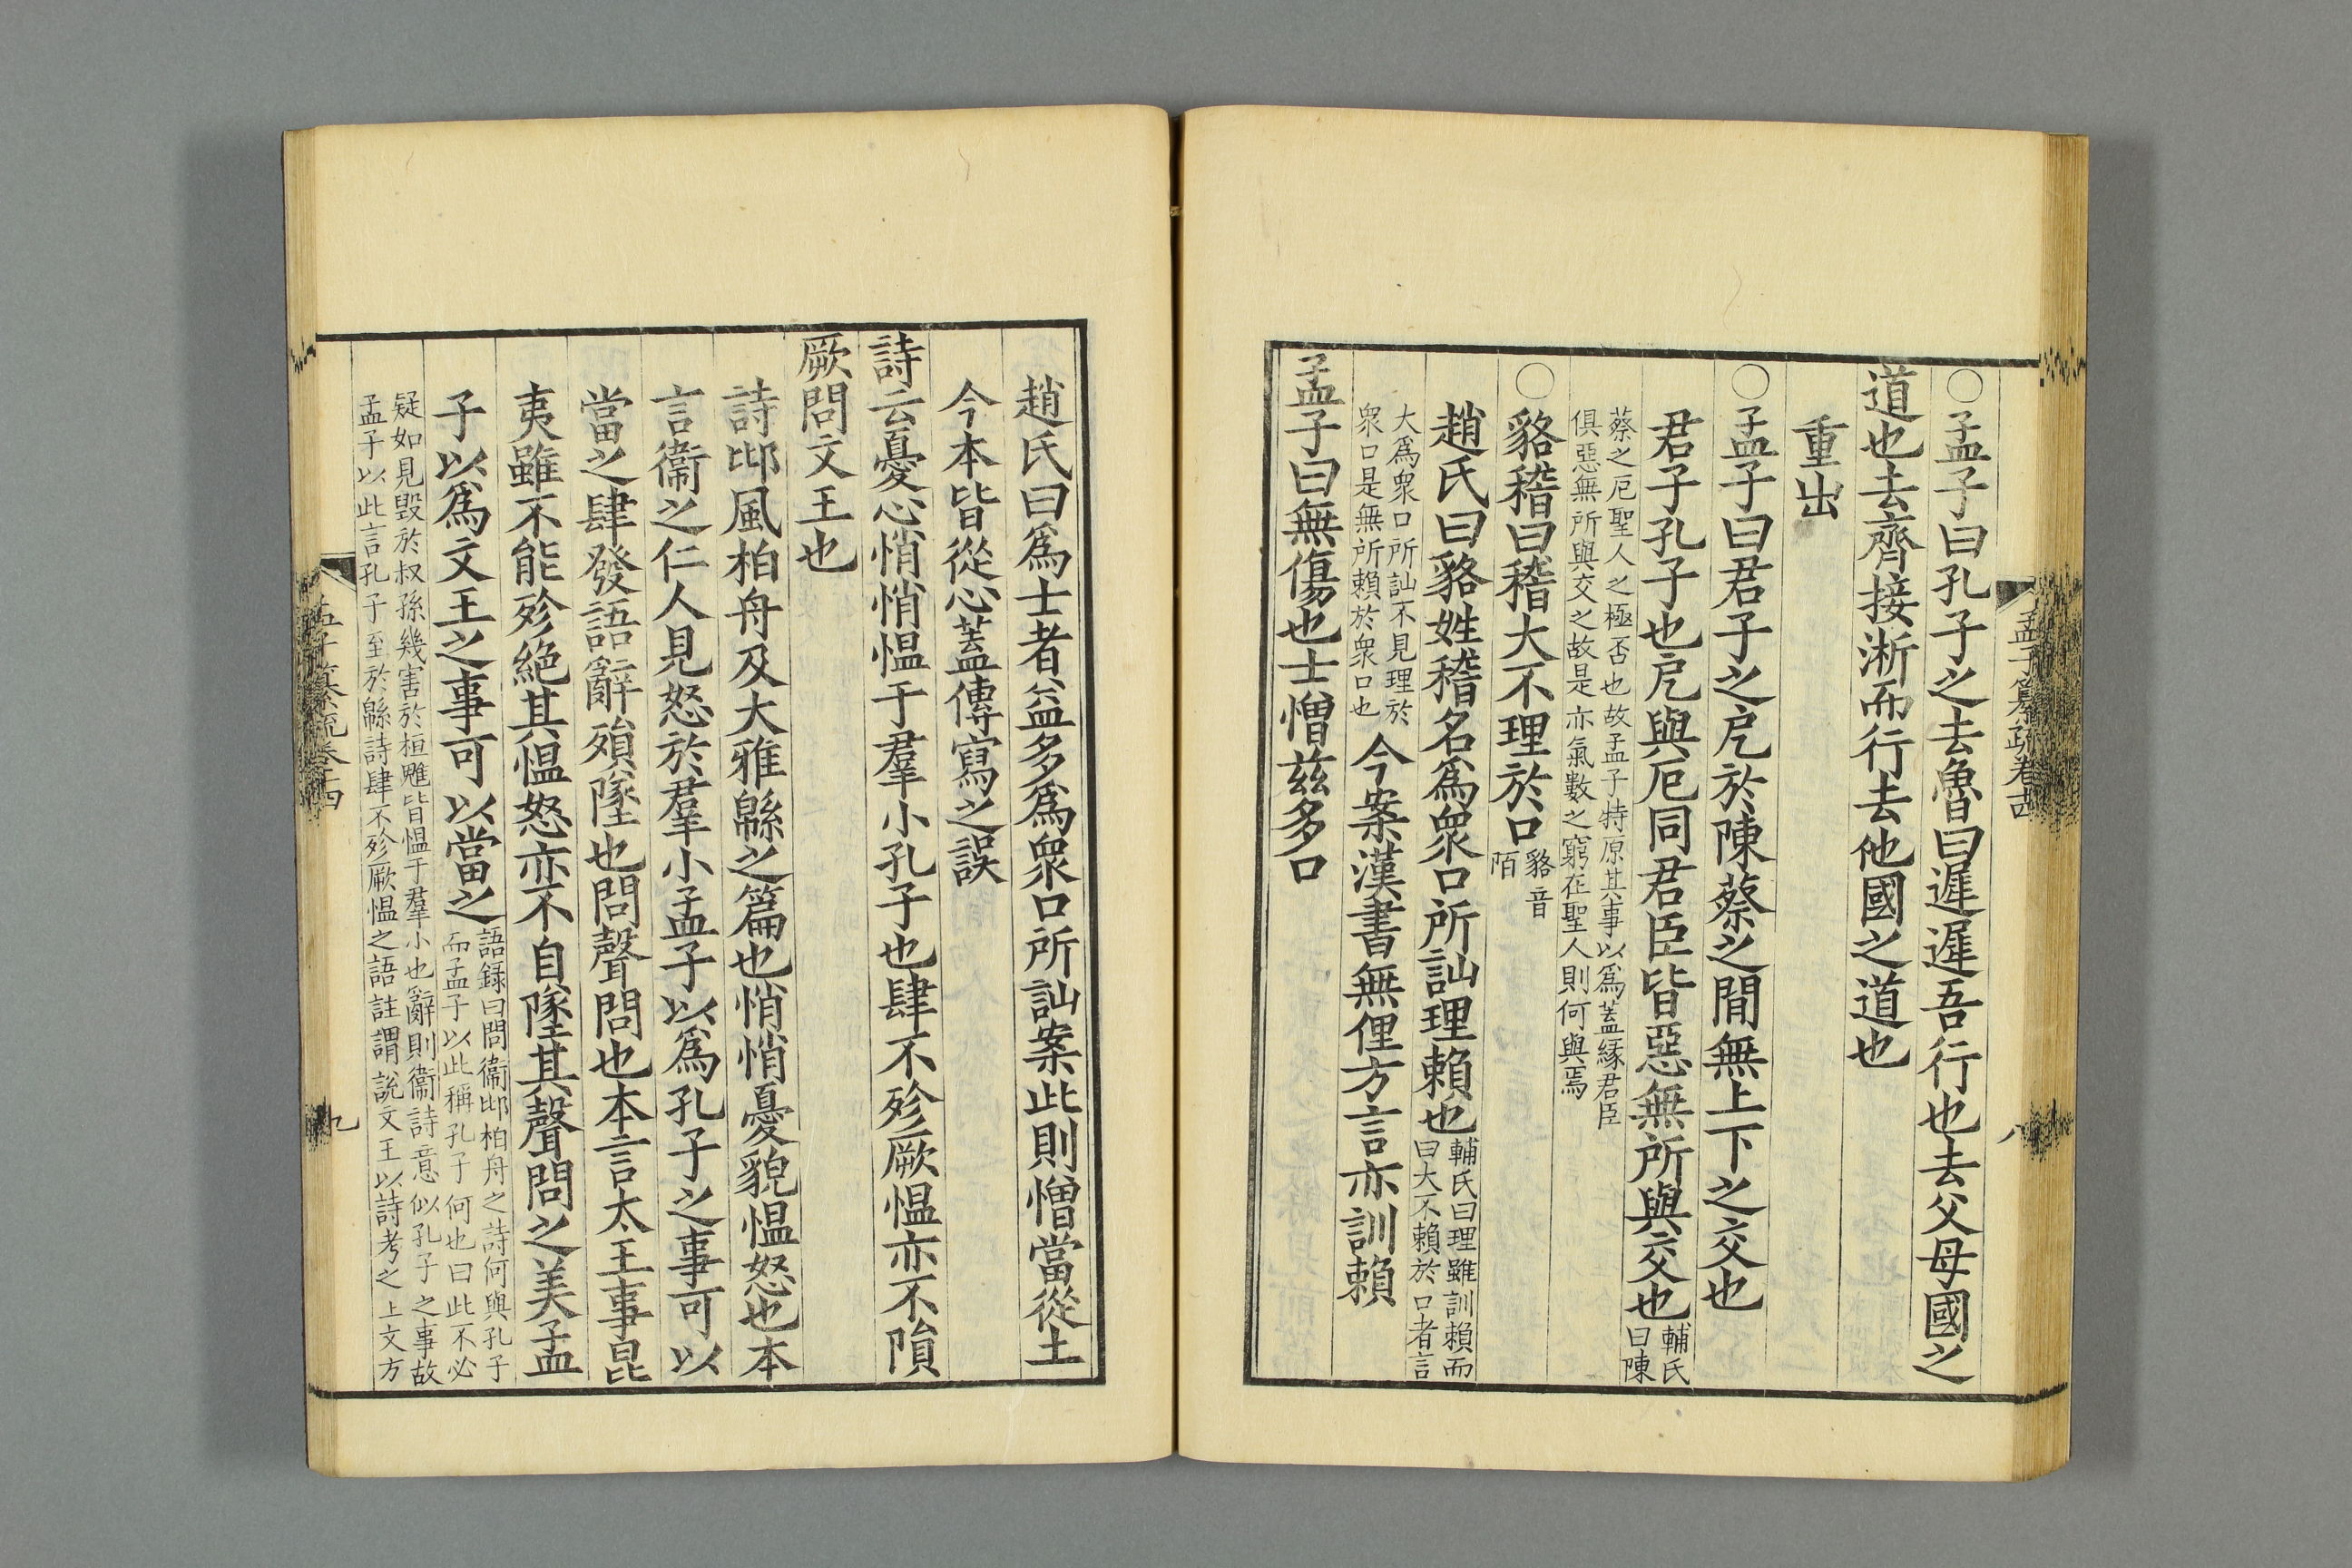 孟子纂疏卷十四
八
○孟子曰孔子之去魯曰遲遲吾行也去父母國之
道也去齊接淅而行去他國之道也
重出
○孟子曰君子之戹於陳蔡之閒無上下之交也
君子孔子也戹與厄同君臣皆惡無所與交也輔氏
曰陳
蔡之厄聖人之極否也故孟子特原其事以爲蓋緣君臣
俱惡無所與交之故是亦氣數之窮在聖人則何與焉
○貉稽曰稽大不理於口貉音
陌
趙氏曰貉姓稽名爲衆口所訕理賴也輔氏曰理雖訓賴而
曰大不賴於口者言
大爲衆口所訕不見理於
衆口是無所賴於衆口也今案漢書無俚方言亦訓賴
孟子曰無傷也士憎茲多口
趙氏曰爲士者益多爲衆口所訕案此則憎當從土
今本皆從心蓋傳寫之誤
詩云憂心悄悄慍于羣小孔子也肆不殄厥慍亦不隕
厥問文王也
詩邶風柏舟及大雅緜之篇也悄悄憂貌慍怒也本
言衞之仁人見怒於羣小孟子以爲孔子之事可以
當之肆發語辭殞墜也問聲問也本言太王事昆
夷雖不能殄絕其慍怒亦不自墜其聲問之美孟
子以爲文王之事可以當之語錄曰問衞邶柏舟之詩何與孔子
而孟子以此稱孔子何也曰此不必
疑如見毀於叔孫幾害於桓魋皆慍于羣小也辭則衞詩意似孔子之事故
孟子以此言孔子至於緜詩肆不殄厥慍之語註謂說文王以詩考之上文方
孟子纂疏卷十四
九